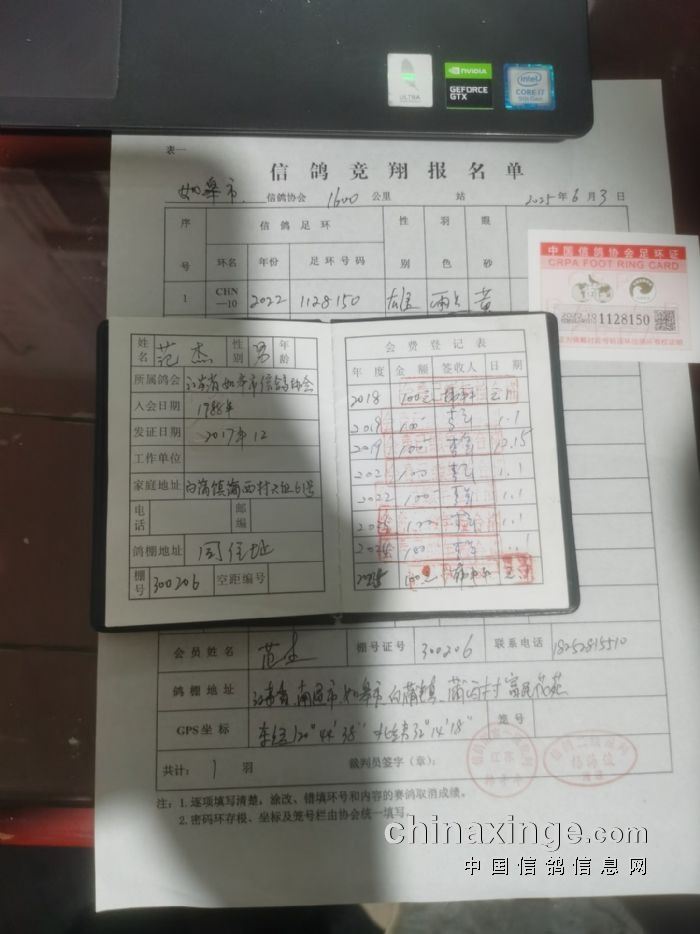 ULTRA
NVIDIA
GEFORCE
GTX
intel
CORE i7
9th Gen
表一
信鸽竞翔报名单
如皋市 信鸽协会 1600 公里 站 2025年6月3日
序号 信鸽足环 性别 羽色 眼砂
环名 年份 足环号码
1 CHN—10 2022 1128150 雄 雨点 黄
中国信鸽协会足环证
CRPA FOOT RING CARD
2022-10 1128150
姓名 范杰 性别 男 年龄
所属鸽会 江苏省如皋市信鸽协会
入会日期 1988年
发证日期 2017年12
工作单位
家庭地址 白蒲镇蒲西村
电话 邮编
鸽棚地址 同住址
棚号 300206 空距编号
会费登记表
年度 金额 签收人 日期
2018 100元
2019 100 1.1
2019 100 12.15
202 100 1.1
2022 100 1.1
100 1.1
100
2025 100元
会员姓名 范杰 棚号证号 300206 联系电话 18252815510
鸽棚地址 江苏省南通市如皋市白蒲镇蒲西村富民花苑
GPS坐标 东经120°44′38″ 北纬32°14′18″ 签号
共计: 1 羽 裁判员签字(章):
注:1.逐项填写清楚,涂改、错填环号和内容的赛鸽取消成绩。
2.密码环存根、坐标及笼号栏由协会统一填写。
chinaxinge.com
中国信鸽信息网